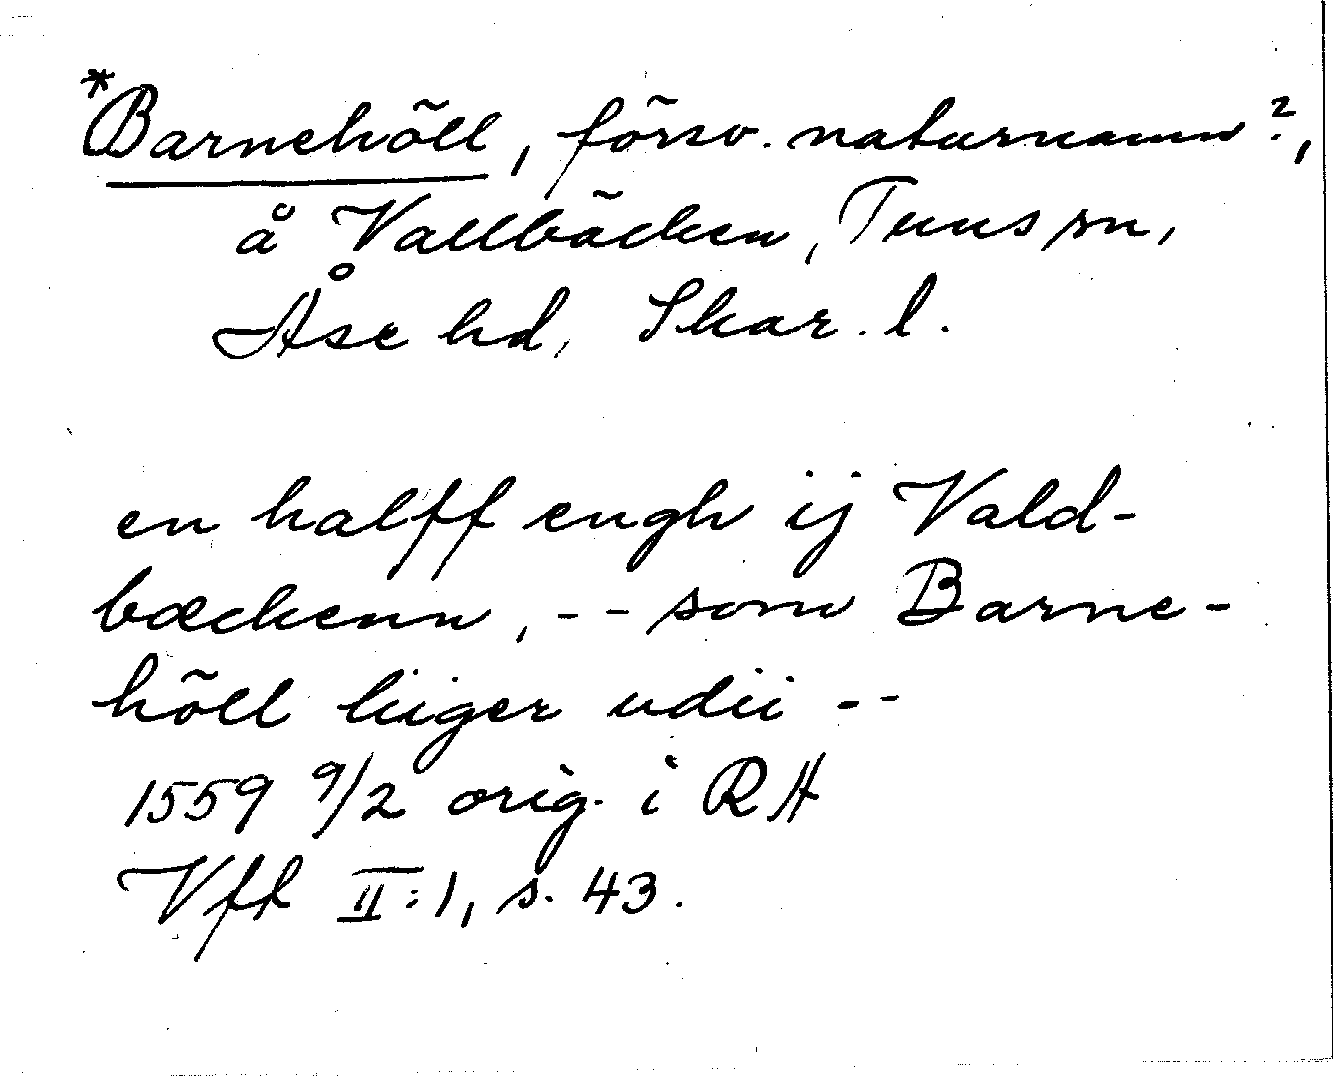 *Barnehöll, försv. naturnamn?,
å Vallbäcken, Tuns sn,
Åse hd, Skar. l.
en halff engh ij Vald-
bæckenn, -- som Barne-
höll liiger udii --
1559 9/2 orig. i RH
Vff II:1, s. 43.